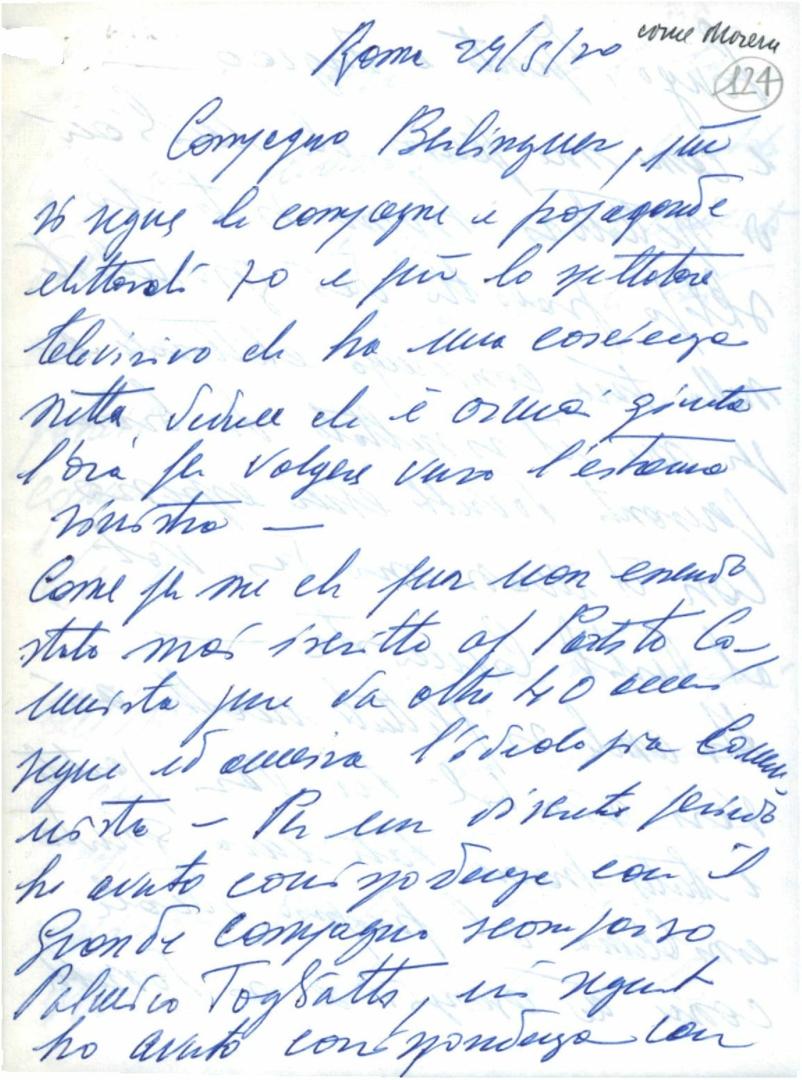 Roma 29/5/70
come Morena
124
Compagno Berlinguer, più
si segue la campagna e propaganda
elettorale 70 e più lo spettatore
televisivo che ha una coscienza
netta deduce che è ormai giunta
l'ora per volgere verso l'estrema
sinistra —
Come per me che pur non essendo
stato mai iscritto al Partito Co-
munista pure da oltre 40 anni
segue ed ammira l'ideologia Comu-
nista — Per un discreto periodo
ho avuto corrispondenza con il
Grande compagno scomparso
Palmiro Togliatti, in seguito
ho avuto corrispondenza con